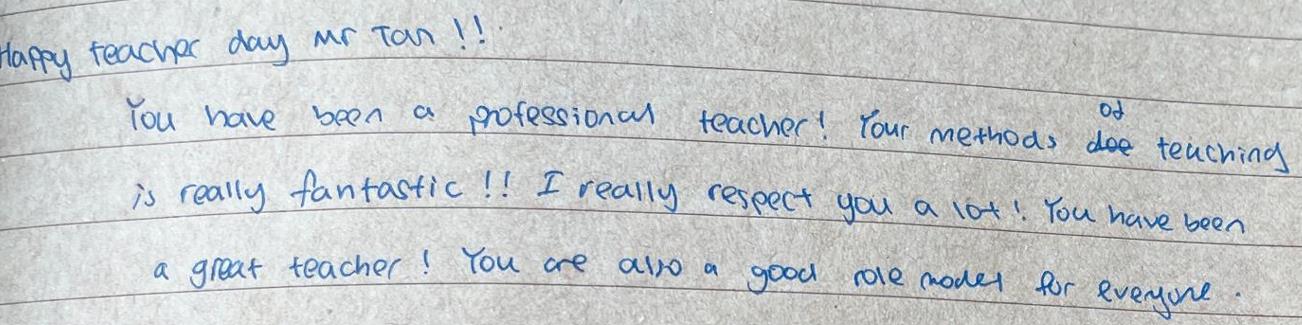 Happy teacher day Mr Tan !!
You have been a professional teacher! Your methods of teaching
is really fantastic !! I really respect you a lot! You have been
a great teacher! You are also a good role model for everyone.